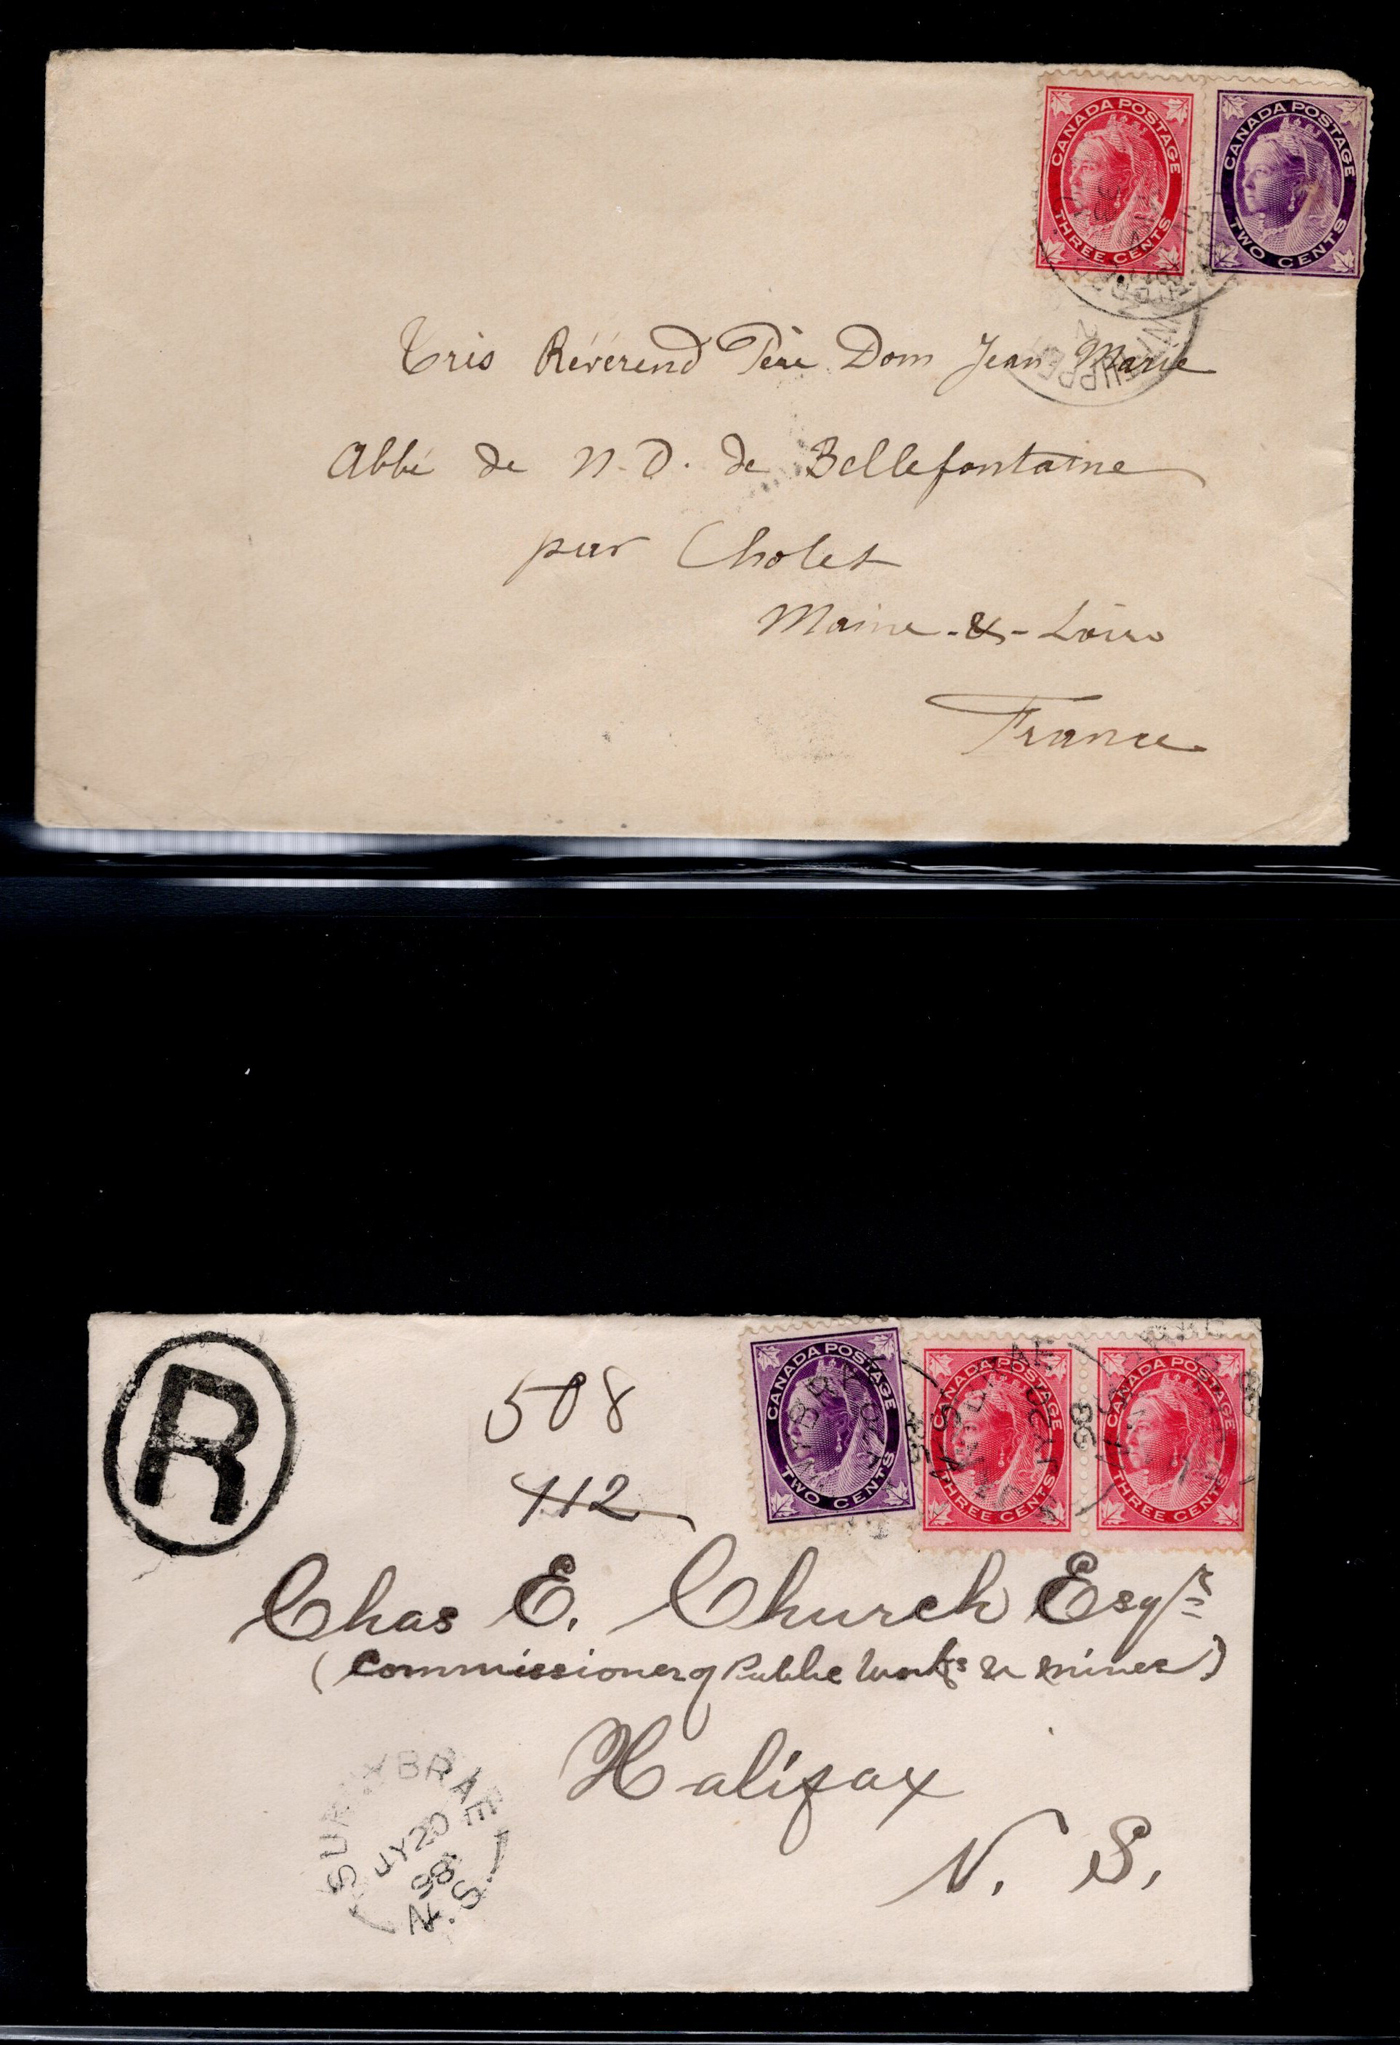 CANADA POSTAGE
THREE CENTS
CANADA POSTAGE
TWO CENTS
UPPER
Tris Révérend Père Dom Jean Marie
Abbé de N. D. de Bellefontaine
par Cholet
Maine-&-Loire
France
R
508
112
CANADA POSTAGE
TWO CENTS
CANADA POSTAGE
THREE CENTS
CANADA POSTAGE
THREE CENTS
98
98
Chas E. Church Esqrs
(Commissioner of Public Works & Mines)
Halifax
N. S.
SUNNYBRAE
JY 20
98
N.S.